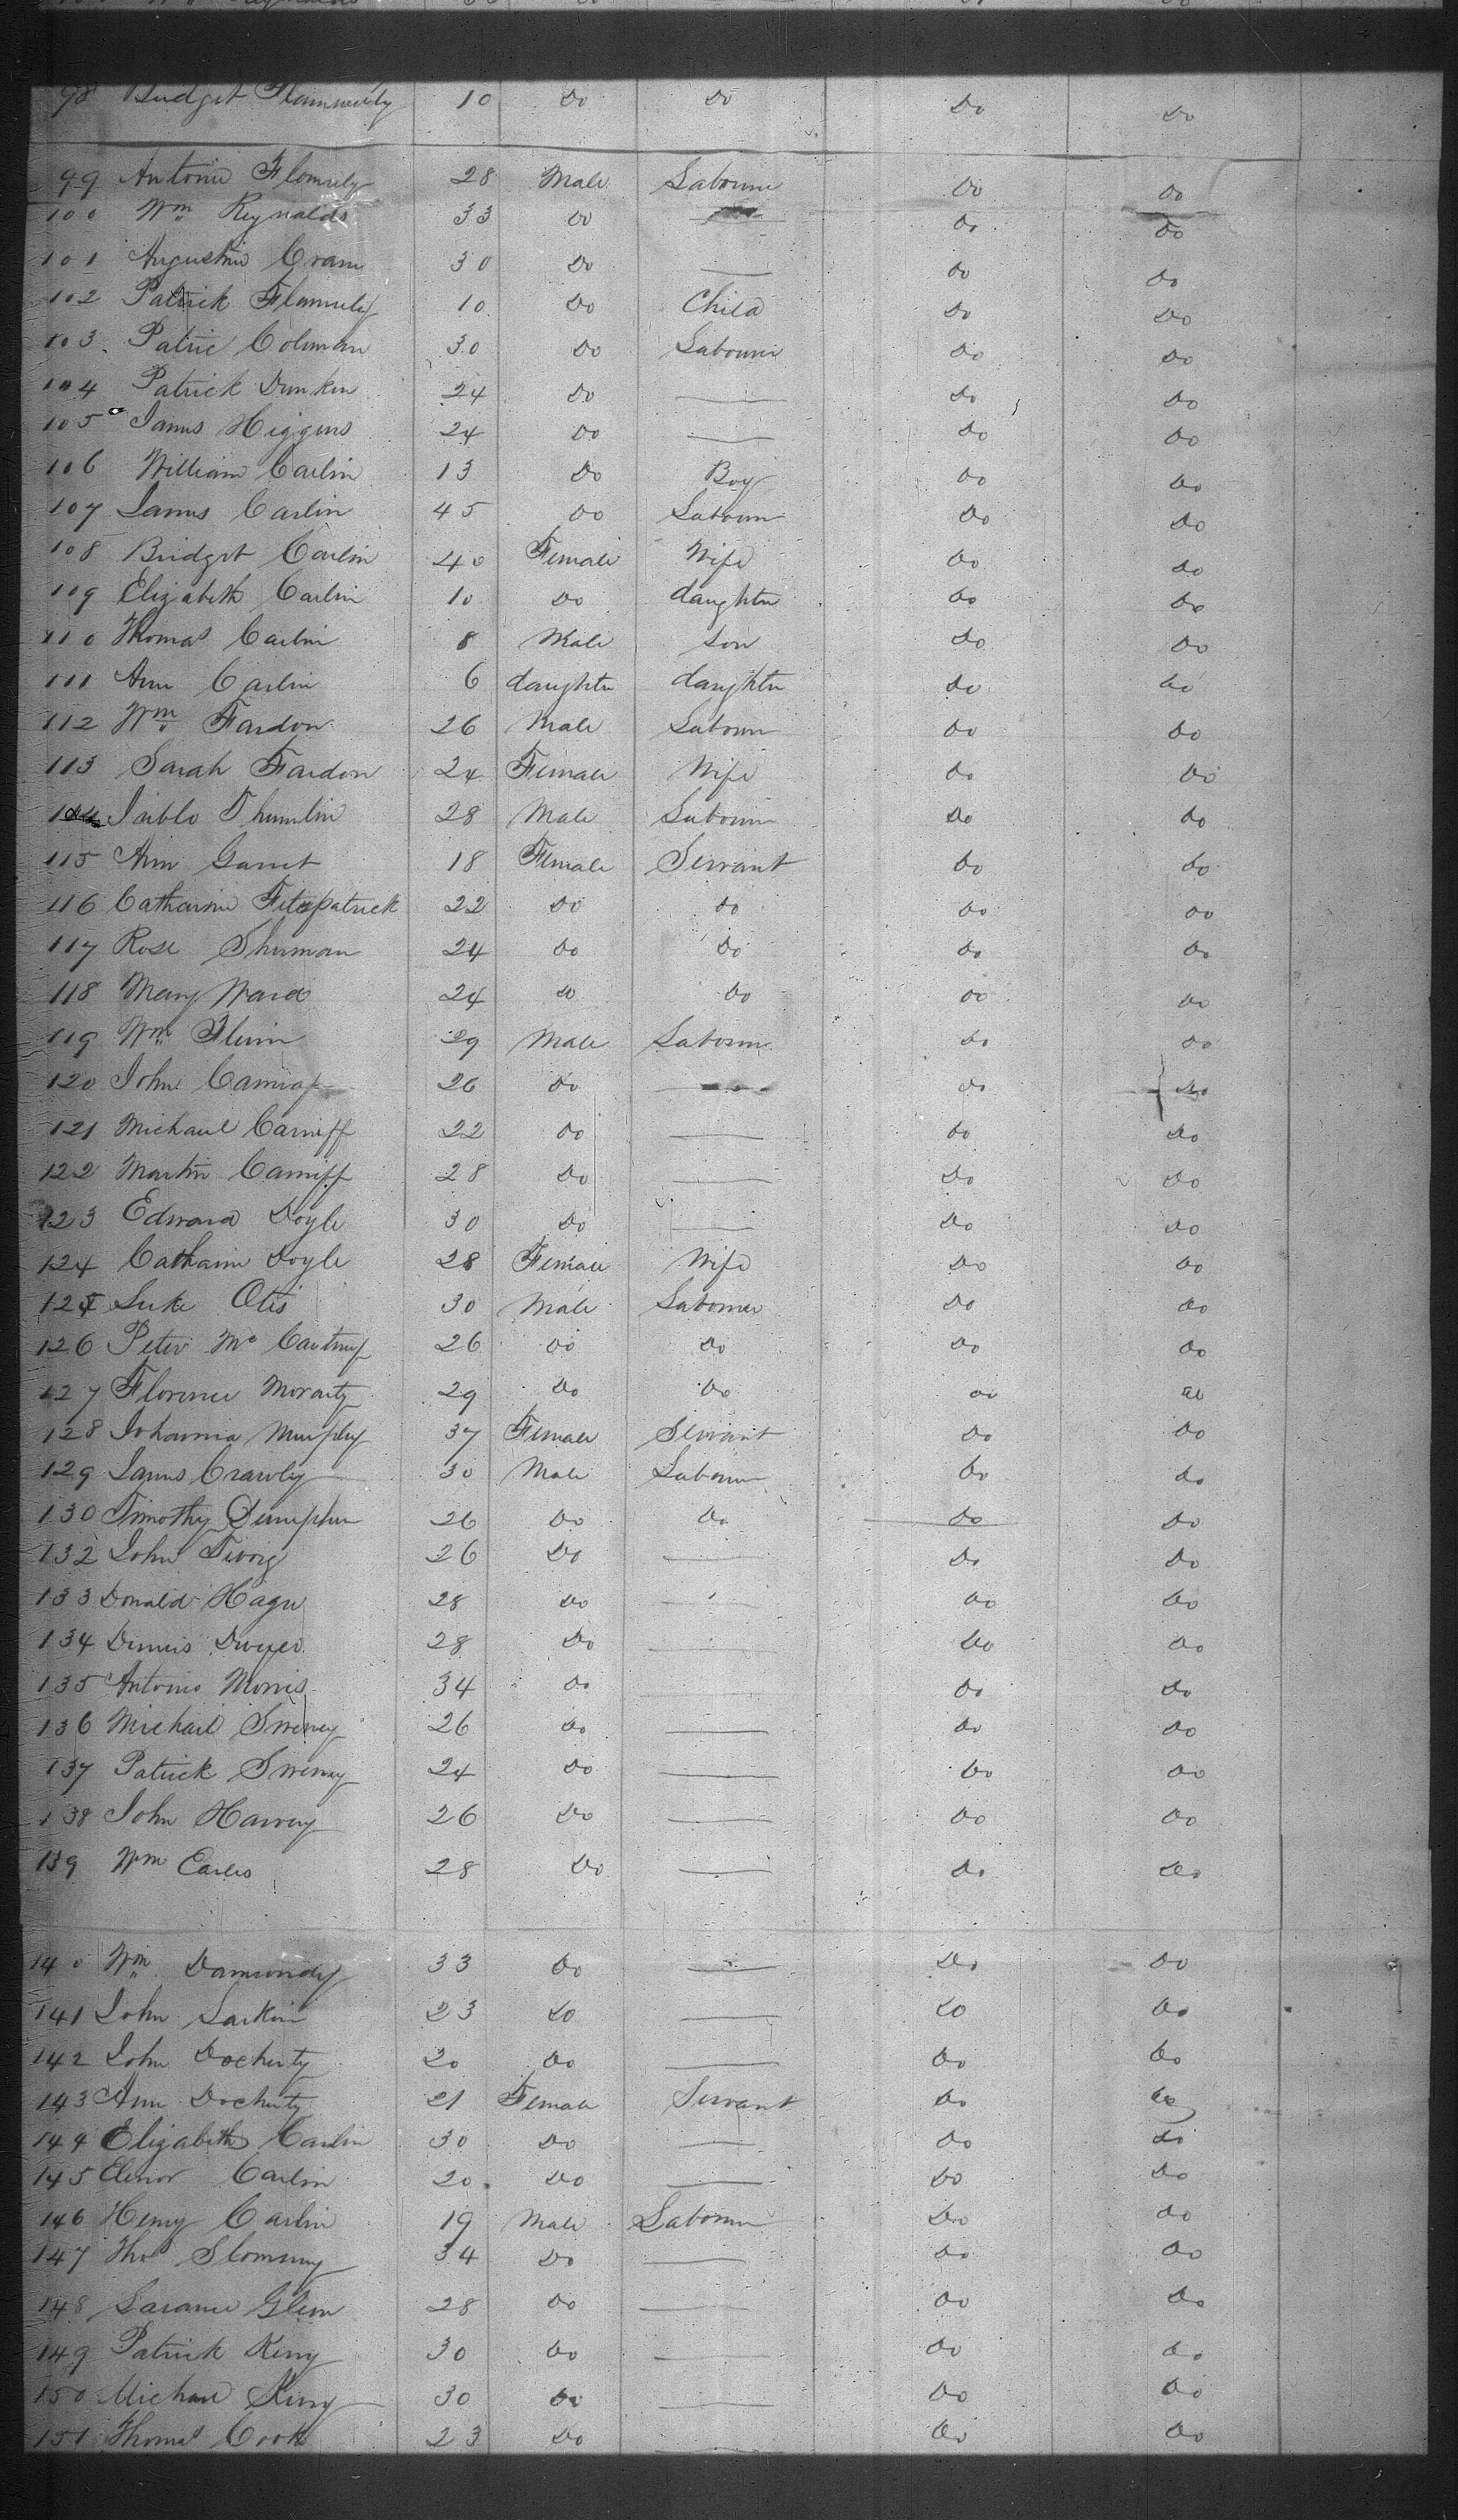 98 Bridget 10 Do Do Do Do
99 Antonie 28 Male Labourer Do Do
100 Wm Reynolds 33 Do — Do Do
101 Augustine 30 Do — Do Do
102 Patrick 10 Do Child Do Do
103 Patric Coleman 30 Do Labourer Do Do
104 Patrick Dunken 24 Do — Do Do
105 James Higgens 24 Do — Do Do
106 William Carlin 13 Do Boy Do Do
107 James Carlin 45 Do Labourer Do Do
108 Bridget Carlin 40 Female Wife Do Do
109 Elizabeth Carlin 10 Do daughter Do Do
110 Thomas Carlin 8 Male Son Do Do
111 Ann Carlin 6 daughter daughter Do Do
112 Wm Fardon 26 Male Labourer Do Do
113 Sarah Fardon 24 Female Wife Do Do
28 Male Labourer Do Do
115 Ann Garret 18 Female Servant Do Do
116 Catharine Fitzpatrick 22 Do Do Do Do
117 Rose Shurman 24 Do Do Do Do
118 Mary Ward 24 Do Do Do Do
119 Wm Flinn 29 Male Labourer Do Do
120 John 26 Do — Do Do
121 Michael Canniff 22 Do — Do Do
122 Martin Canniff 28 Do — Do Do
123 Edward Doyle 30 Do — Do Do
124 Catharine Doyle 28 Female Wife Do Do
125 Luke Otis 30 Male Labourer Do Do
126 Peter Mc Cartney 26 Do Do Do Do
127 Florence Morarty 29 Do Do Do Do
128 Johanna Murphy 37 Female Servant Do Do
129 James Crawley 30 Male Labourer Do Do
130 Timothy 26 Do Do Do Do
132 John 26 Do — Do Do
133 Donald Hague 28 Do — Do Do
134 Dennis Dwyer 28 Do — Do Do
135 Antonio Morris 34 Do — Do Do
136 Michael Sweney 26 Do — Do Do
137 Patrick Sweney 24 Do — Do Do
138 John Harvey 26 Do — Do Do
139 Wm Earles 28 Do — Do Do
140 Wm 33 Do — Do Do
141 John Larkin 23 Do — Do Do
142 John Docherty 20 Do — Do Do
143 Ann Docherty 21 Female Servant Do Do
144 Elizabeth Carlin 30 Do — Do Do
145 Elenor Carlin 20 Do — Do Do
146 Henry Carlin 19 Male Labourer Do Do
147 Thos 34 Do — Do Do
148 Glenn 28 Do — Do Do
149 Patrick King 30 Do — Do Do
150 Michael King 30 Do — Do Do
151 Thomas Cook 23 Do — Do Do